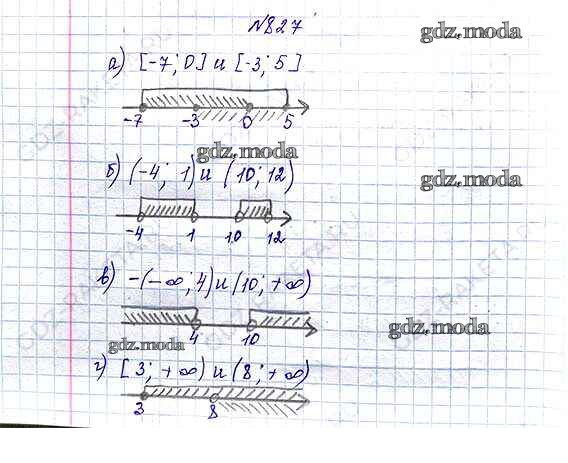 №827
gdz.moda
а) [-7; 0] и [-3; 5]
-7 -3 0 5
gdz.moda
б) (-4; 1) и (10; 12)
gdz.moda
-4 1 10 12
в) -(-∞; 4) и (10; +∞)
gdz.moda
4 10
gdz.moda
г) [3; +∞) и (8; +∞)
3 8